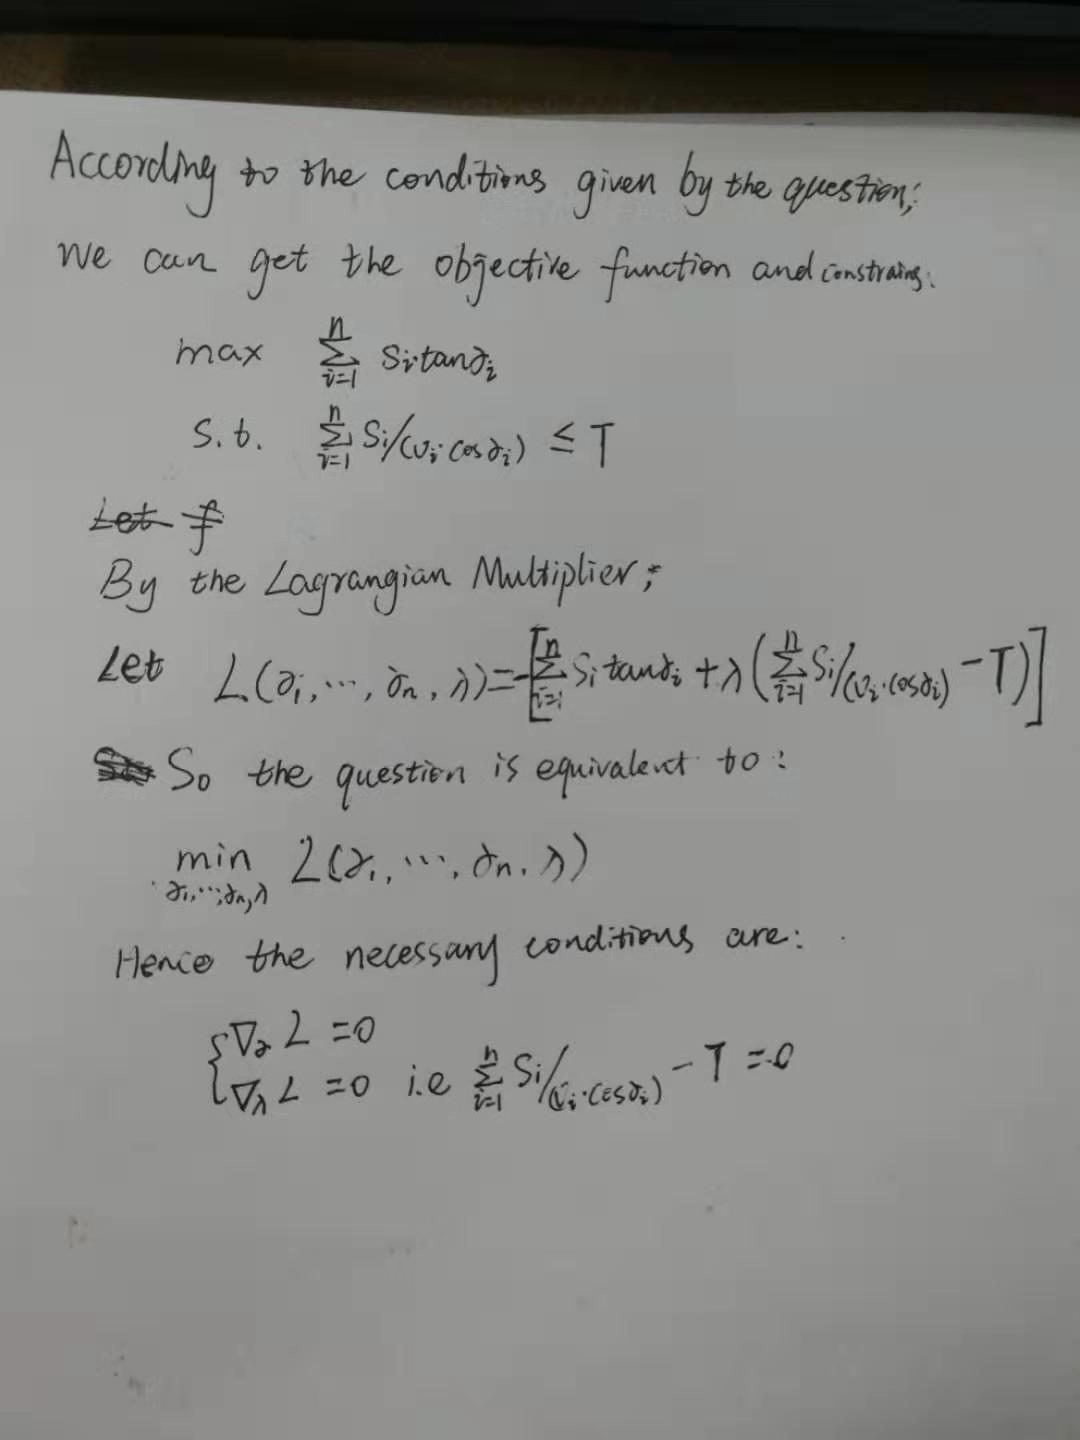 According to the conditions given by the question;
We can get the objective function and constrains:
max ∑_{i=1}^{n} Si·tan∂i
s.t. ∑_{i=1}^{n} Si/(υi·cos∂i) ≤ T
Let f
By the Lagrangian Multiplier;
Let L(∂1, ···, ∂n, λ)=-[∑_{i=1}^{n} Si tan∂i + λ(∑_{i=1}^{n} Si/(υi·cos∂i) - T)]
So the question is equivalent to:
min_{∂1,···,∂n,λ} L(∂1, ···, ∂n, λ)
Hence the necessary conditions are:
{∇∂ L = 0
∇λ L = 0 i.e ∑_{i=1}^{n} Si/(υi·cos∂i) - T = 0